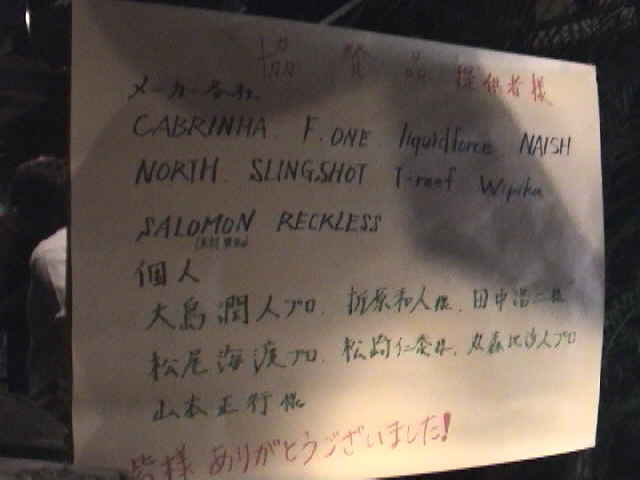 協賛品 提供者様
メーカー各社
CABRINHA F.ONE liquidforce NAISH
NORTH SLINGSHOT T-reef Wipika
SALOMON RECKLESS
個人
大島潤人プロ. 折原和人様. 田中浩二様
松尾海渡プロ. 松崎仁 様. 人プロ
山本正行様
皆様 ありがとうございました!